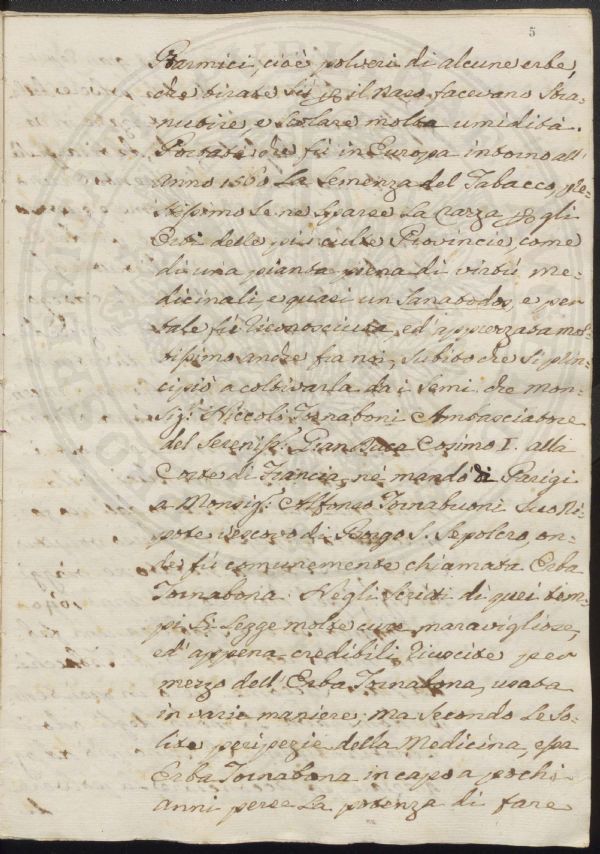 5
Starmici, cioè polveri di alcune erbe,
che tirate sù p il naso facevano stra-
nutire, e scolare molta umidità.
Portata che fù in Europa intorno all'
anno 1560 La Semenza del Tabacco, pre-
stissimo se ne sparse La razza p gli
Orti delle più culte Provincie come
di una pianta piena di virtù me-
dicinali, e quasi un Sanatodos, e per
tale fù riconosciuta, ed apprezzata mol-
tissimo anche fra noi, subito che si prin-
cipiò a coltivarla da i semi, che Mon-
sig.r Niccolò Tornaboni Ambasciatore
del Sereniss.o Gran Duca Cosimo I. alla
Corte di Francia, ne mandò di Parigi
a Monsig.r Alfonso Tornabuoni suo Ni-
pote vescovo di Borgo S. Sepolcro, on-
de fù comunemente chiamata Erba
Tornabona. Negli scritti di quei tem-
pi si Legge molte cure maravigliose,
ed appena credibili riuscite per
mezzo dell'Erba Tornabona, usata
in varie maniere; ma secondo Le so-
lite peripezie della Medicina, essa
Erba Tornabona in capo a pochi
anni perse La potenza di fare